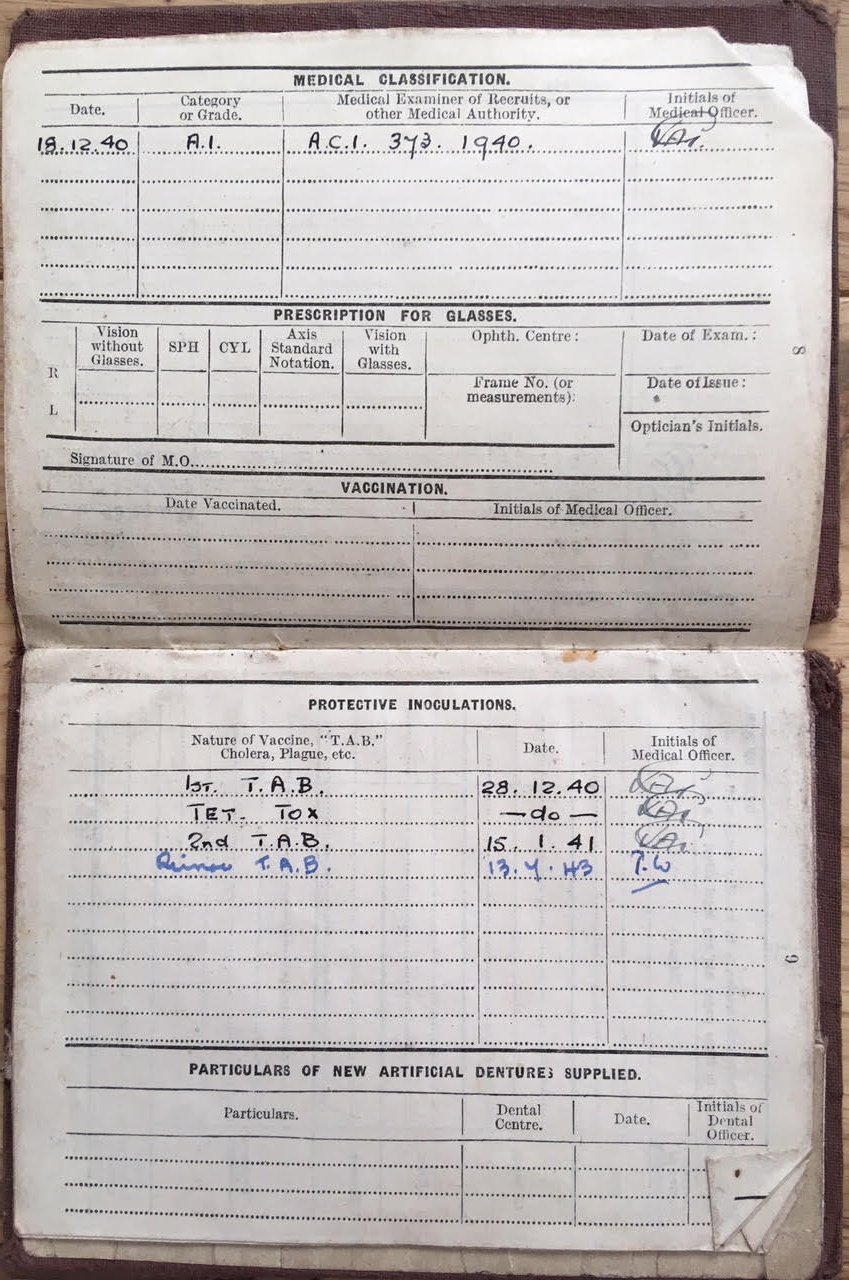 MEDICAL CLASSIFICATION.
Date. Category or Grade. Medical Examiner of Recruits, or other Medical Authority. Initials of Medical Officer.
18.12.40 A.1. A.C.I. 373. 1940.
PRESCRIPTION FOR GLASSES.
Vision without Glasses. SPH CYL Axis Standard Notation. Vision with Glasses. Ophth. Centre: Date of Exam.:
R
Frame No. (or measurements): Date of Issue:
L
Optician's Initials.
Signature of M.O.
VACCINATION.
Date Vaccinated. Initials of Medical Officer.
8
PROTECTIVE INOCULATIONS.
Nature of Vaccine, "T.A.B." Cholera, Plague, etc. Date. Initials of Medical Officer.
1st. T.A.B. 28.12.40
TET. TOX —do—
2nd T.A.B. 15.1.41
T.A.B. 13.4.43 T.W
9
PARTICULARS OF NEW ARTIFICIAL DENTURES SUPPLIED.
Particulars. Dental Centre. Date. Initials of Dental Officer.